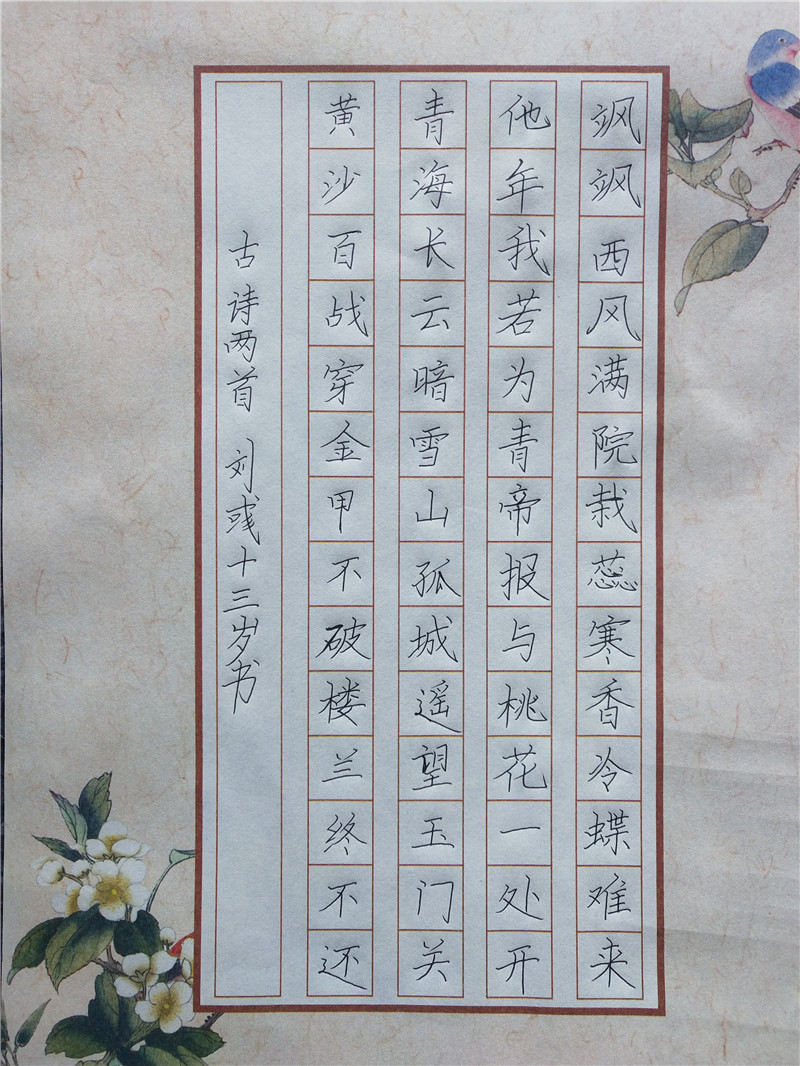 飒飒西风满院栽蕊寒香冷蝶难来
他年我若为青帝报与桃花一处开
青海长云暗雪山孤城遥望玉门关
黄沙百战穿金甲不破楼兰终不还
古诗两首 刘彧十三岁书